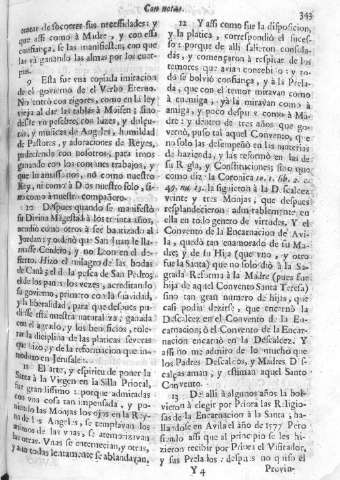 Con notas.
343
tratar de socorrer sus necessidades: y
que assi como à Madre, y con essa
confiança, se las manifiesten; con que
las và ganando las almas por los cuerpos.
9 Esta fue una copiada imitacion
de el govierno de el Verbo Eterno.
No entrò con rigores, como en la ley
vieja al dar las tablas à Moisen; sino
desde no pesebre, con luzes, y dulçuras,
y musicas de Angeles, humildad
de Pastores, y adoraciones de Reyes,
padeciendo con nosotros, para irnos
ganando con los comunes trabajos, y
que le amassemos, no como nuestro
Rey, ni como à Dios nuestro solo, sino
como à nuestro compañero.
10 Despues quando se manifestò
su Divina Magestad à los treinta años,
acudiò como otros à ser bautizado al
Jordan: y ordenò que San Juan le llamasse
Cordero, y no Leon el desierto.
Hizo el milagro de las bodas
de Canà; el de la pesca de San Pedro;
el de los panes, dos vezes, acreditando
su govierno, primero con la suavidad,
y la liberalidad, para que despues
esta nuestra naturaleza, ganada
con el agrado, y los beneficios, tolerar
la diciplina de las platicas severas
que hizo; y de la reformacion que introduxo
en Jerusalen.
11 El arte, y espiritu de poner la
Santa à la Virgen en la Silla Priocal,
fue grandissimo: porque admiradas
con una cosa tan impensada, y poniendo
las Monjas los ojos en la Reyna
de los Angeles, se templavan los
animos de las unas, se atemorizavan
las otras. Unas se enternecian, y otras,
y aun todas lentamente se ablandavan.
12 Y assi como fue la disposicion,
y la platica, correspondiò el sucesso:
porque de alli salieron consoladas,
y començaron à respirar de los
temores que avian concebido: y todo
se bolviò bonança, y à la Prelada,
que con el temor miravan como
à enemiga, yà la miravan como à
amiga, y poco despues como à Madre:
y dentro de tres años que governò,
puso tal aquel Convento, que
no solo las desempeñò en las materias
de hazienda, y las reformò en las de
su Regla, y Constituciones; sino que
como dize la Coronica to. 1. lib. 2. c.
49. nu. 15. la siguieron à la Descalcez
veinte y tres Monjas, que despues
resplandecieron admirablemente en
ella en todo genero de virtudes. Y el
Convento de la Encarnacion de Avila,
quedò tan enamorado de su Madre;
y de su Hija (que uno, y otro
fue la Santa) que no solo diò à la Sagrada
Reforma à la Madre (pues fue
hija de aquel Convento Santa Teresa)
sino tan gran numero de hijas, que
casi podia dezirse, que entrò la
Descalcez en el Convento de la Encarnacion;
ò el Convento de la Encarnacion
encarnò en la Descalcez. Y
assi no me admiro de lo mucho que
los Padres Descalços, y Madres Descalças
aman, y estiman aquel Santo
Convento.
13 De alli à algunos años la bolvieron
à elegir por Priora las Religiosas
de la Encarnacion à la Santa; hallandose
en Avila el año de 1577. Pero
siendo assi que al principio se les hizieron
recibir por Priora el Visitador,
y sus Prelados; despues no quiso el
Y 4
Provin-